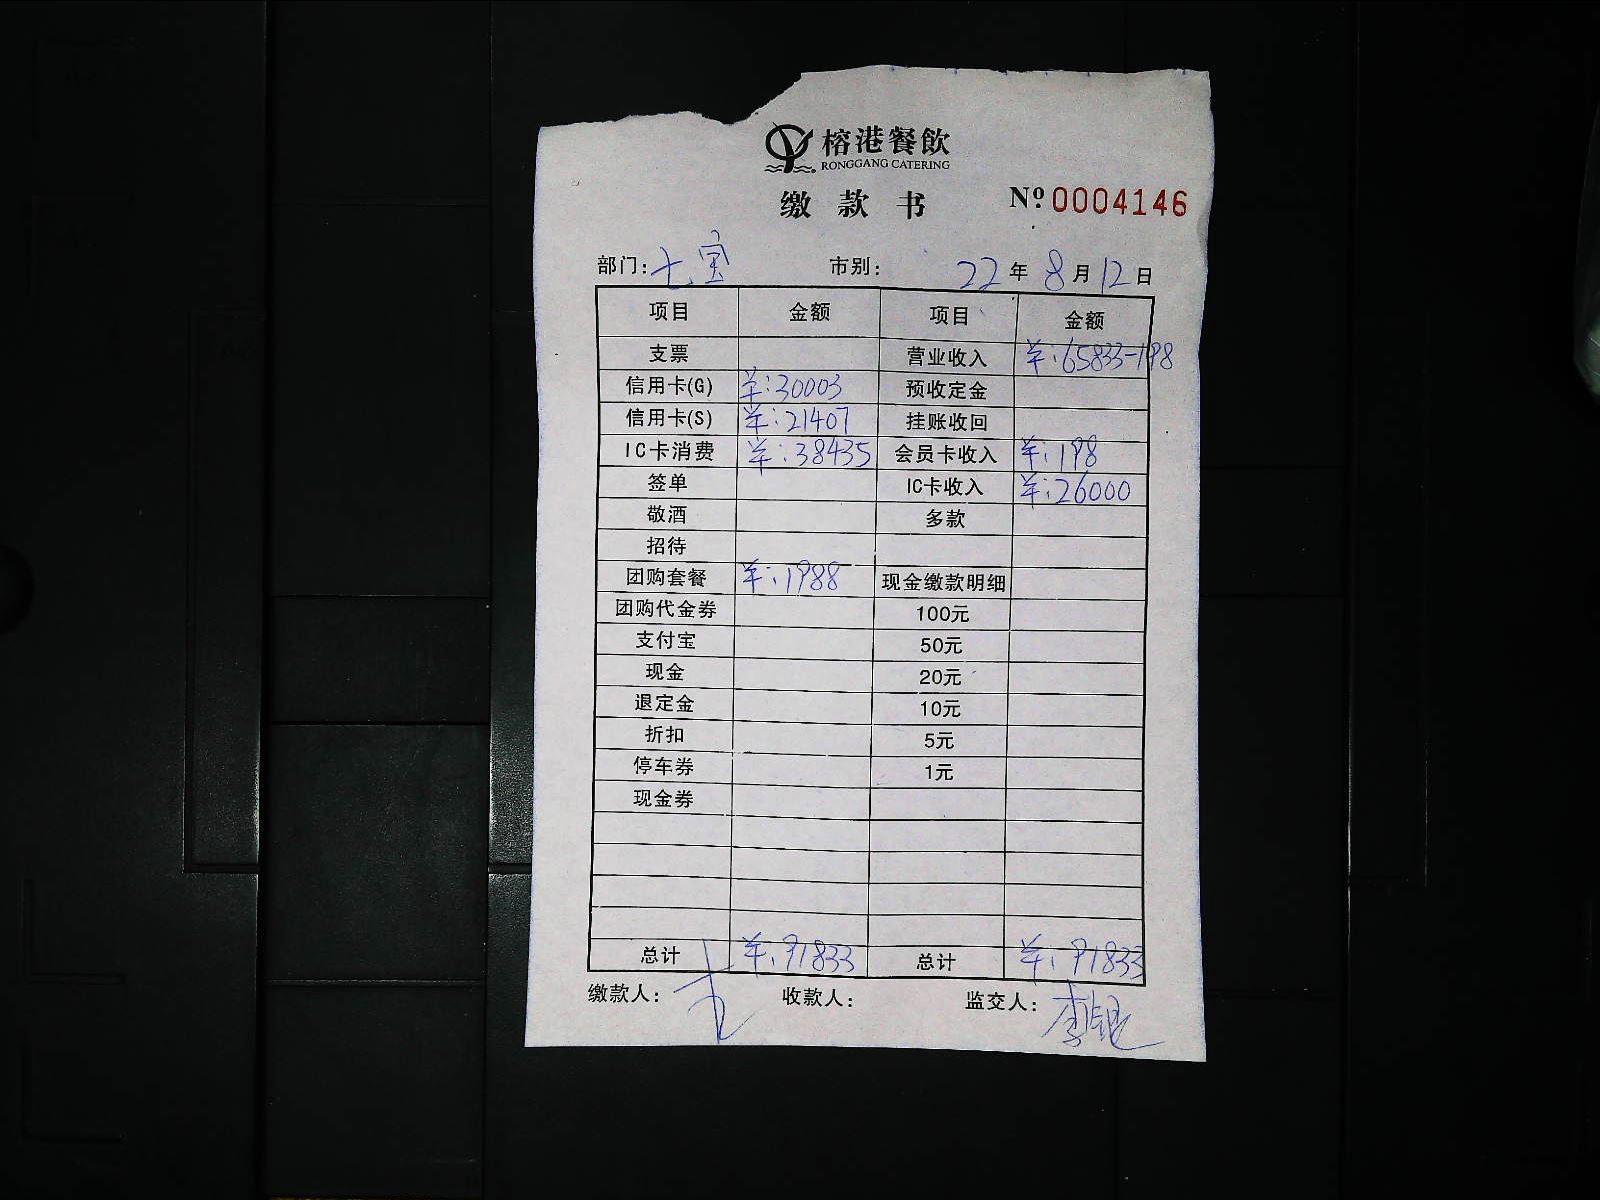 榕港餐飲
RONGGANG CATERING
缴款书 Nº 0004146
部门：七宝 市别： 22年8月12日
项目 金额 项目 金额
支票 营业收入 ¥:65833-198
信用卡(G) ¥:30003 预收定金
信用卡(S) ¥:21407 挂账收回
IC卡消费 ¥:38435 会员卡收入 ¥:198
签单 IC卡收入 ¥:26000
敬酒 多款
招待
团购套餐 ¥:1988 现金缴款明细
团购代金券 100元
支付宝 50元
现金 20元
退定金 10元
折扣 5元
停车券 1元
现金券
总计 ¥:91833 总计 ¥:91833
缴款人： 收款人： 监交人：李银